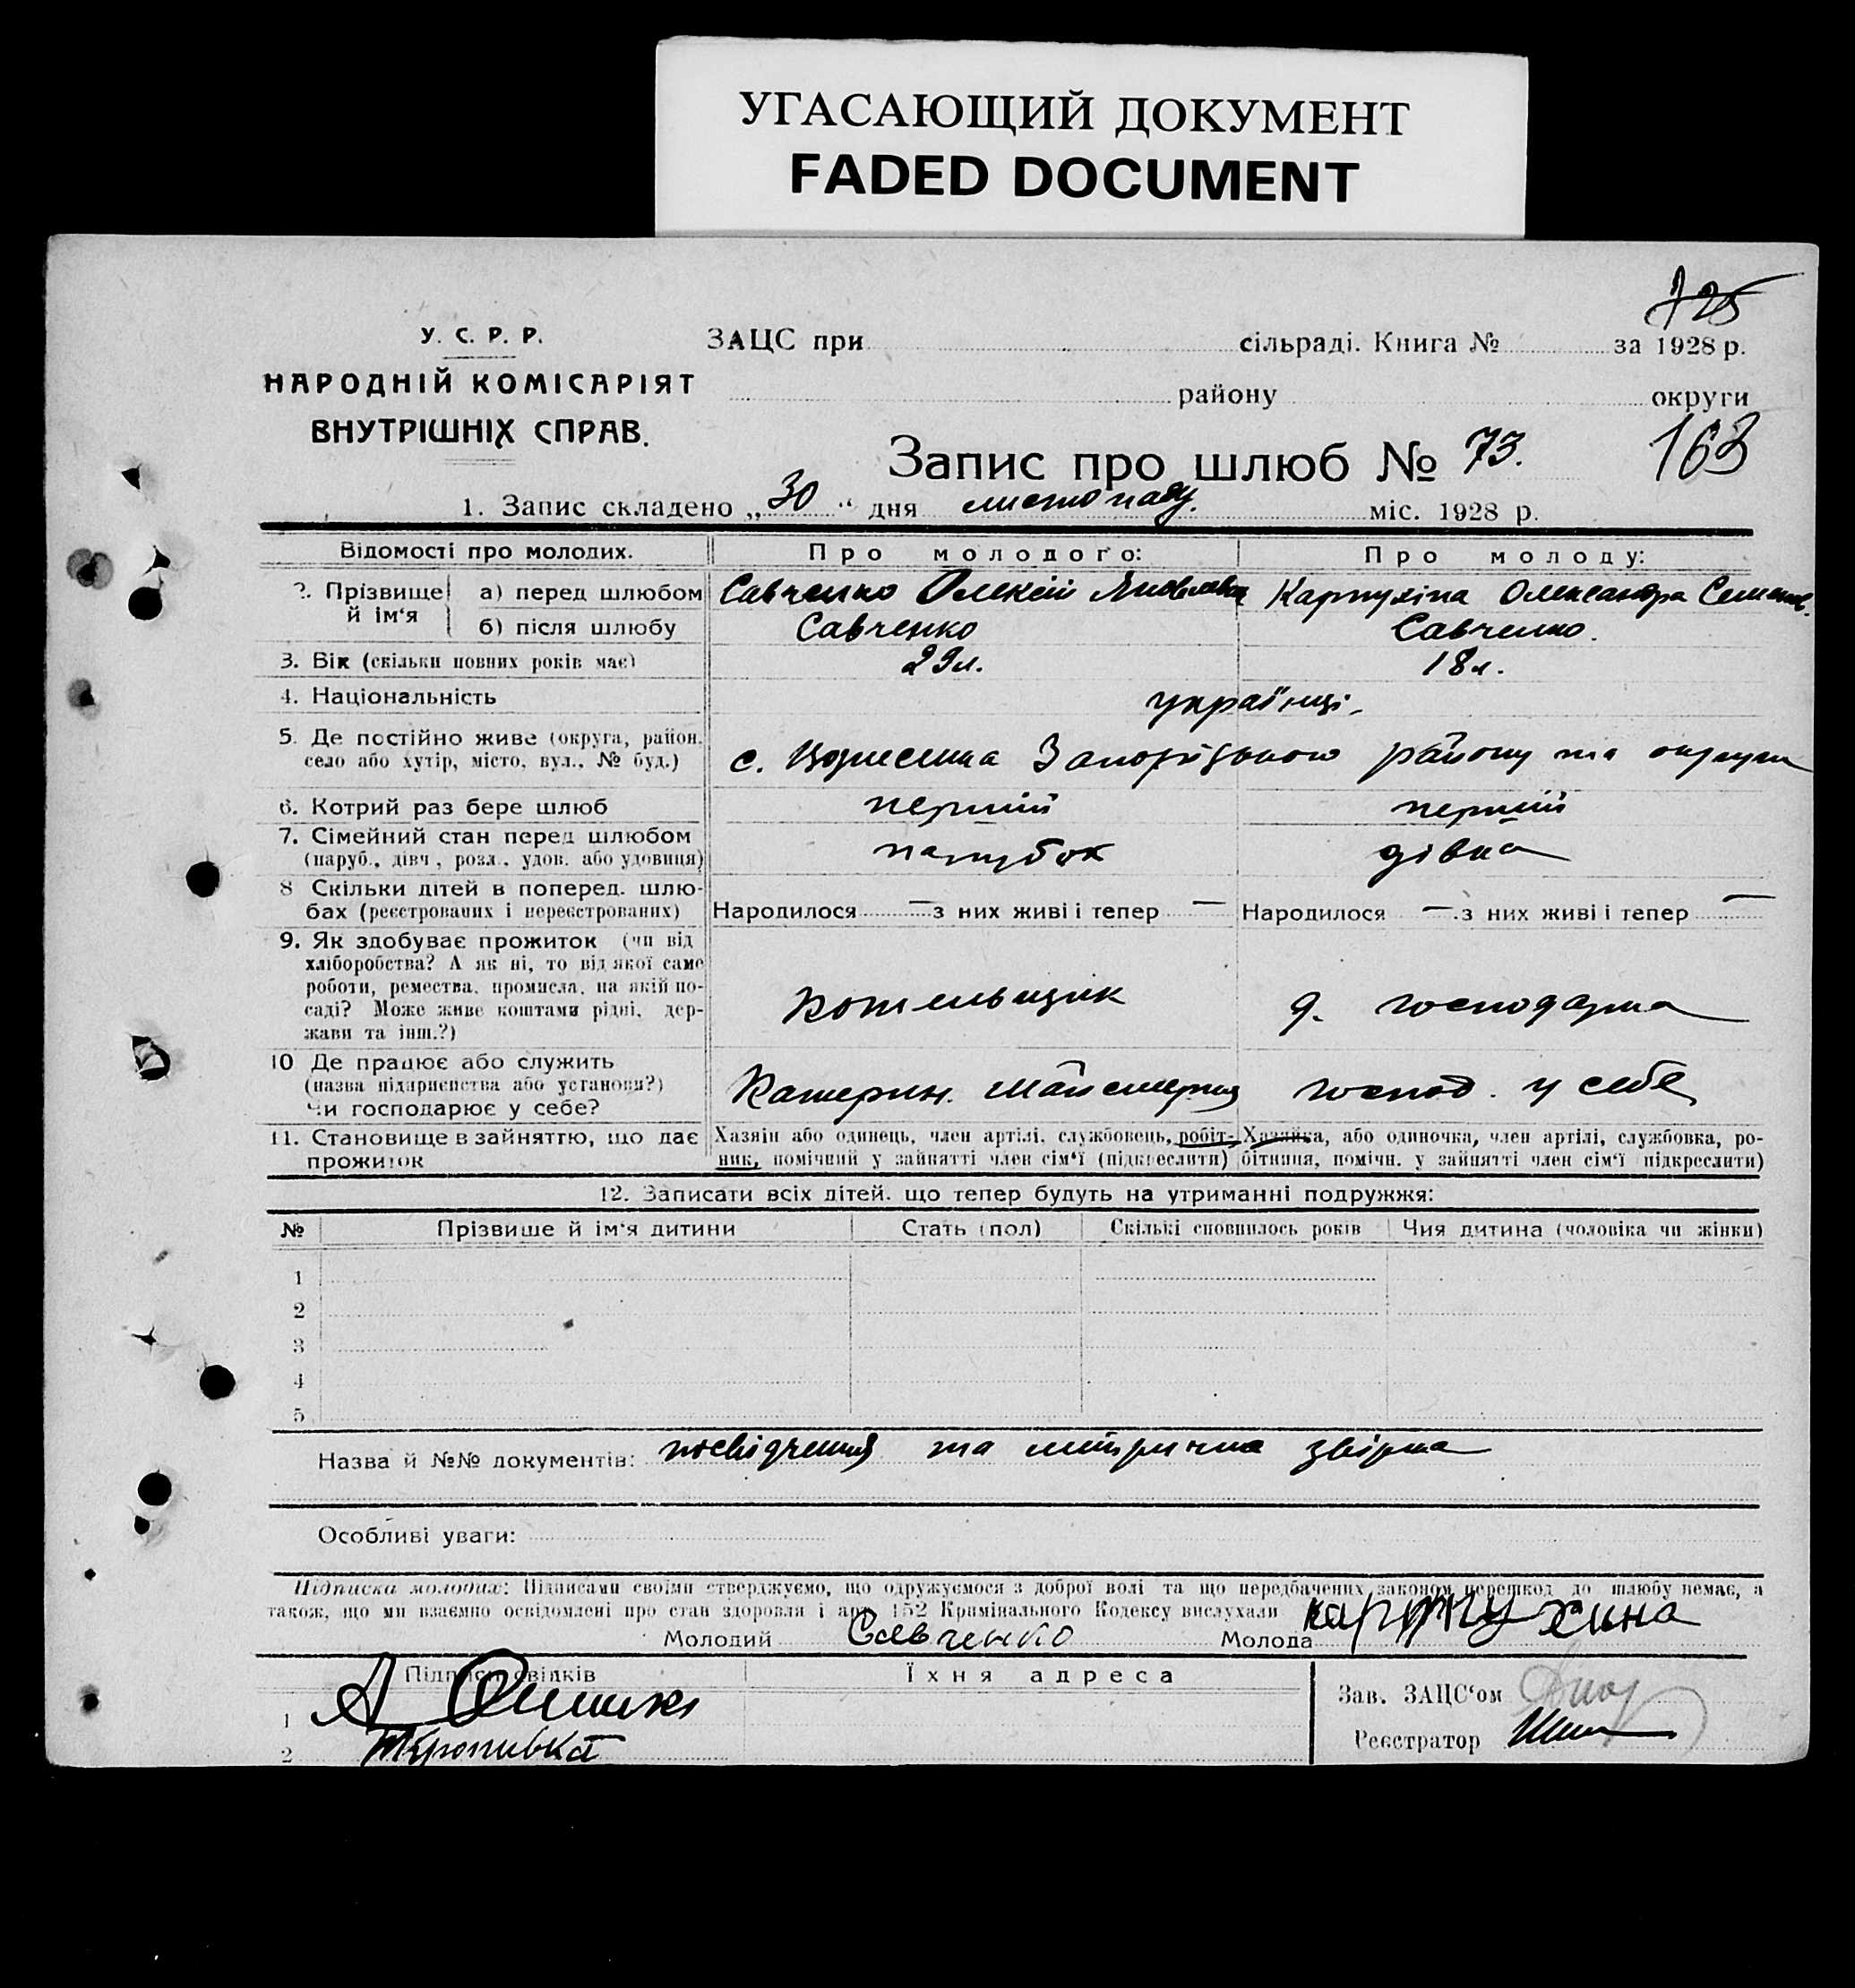 УГАСАЮЩИЙ ДОКУМЕНТ
FADED DOCUMENT
725
У. С. Р. Р.
НАРОДНІЙ КОМІСАРІЯТ
ВНУТРІШНІХ СПРАВ.
ЗАЦС при сільраді. Книга № за 1928 р.
району округи
Запис про шлюб № 73. 163
1. Запис складено „30“ дня листопаду. міс. 1928 р.
Відомості про молодих. Про молодого: Про молоду:
2. Прізвище й ім‘я а) перед шлюбом Савченко Олексій Яковлевич Олександра Семенов.
б) після шлюбу Савченко Савченко.
3. Вік (скільки повних років має) 29л. 18л.
4. Національність українці.
5. Де постійно живе (округа, район,
село або хутір, місто, вул., № буд.) с. Вознесенка Запорізького району та округи
6. Котрий раз бере шлюб перший перший
7. Сімейний стан перед шлюбом
(паруб., дівч., розл., удов. або удовиця) парубок дівка
8 Скільки дітей в поперед. шлю-
бах (реєстрованих і нереєстрованих) Народилося — з них живі і тепер — Народилося — з них живі і тепер —
9. Як здобуває прожиток (чи від
хліборобства? А як ні, то від якої саме
роботи, ремества, промисла, на якій по-
саді? Може живе коштами рідні, дер-
жави та інш.?) Котельщик д. господарка
10 Де працює або служить
(назва підприємства або установи?)
Чи господарює у себе? Катерин. майстерня господ. у себе
11. Становище в зайняттю, що дає
прожиток
Хазяїн або одинець, член артілі, службовець, робіт-
ник, помічний у зайнятті член сім‘ї (підкреслити)
Хазяйка, або одиночка, член артілі, службовка, ро-
бітниця, помічн. у зайнятті член сім‘ї підкреслити)
12. Записати всіх дітей, що тепер будуть на утриманні подружжя:
№ Прізвище й ім‘я дитини Стать (пол) Скількі сповнилось років Чия дитина (чоловіка чи жінки)
1
2
3
4
5
Назва й №№ документів: посвідчення та метрична звірка
Особливі уваги:
Підписка молодих: Підписами своїми стверджуємо, що одружуємося з доброї волі та що передбачених законом перешкод до шлюбу немає, а
також, що ми взаємно освідомлені про стан здоровля і арт. 152 Кримінального Кодексу вислухали
Молодий Савченко Молода
Підписи свідків Їхня адреса
1
2 Кропивка
Зав. ЗАЦС‘ом
Реєстратор